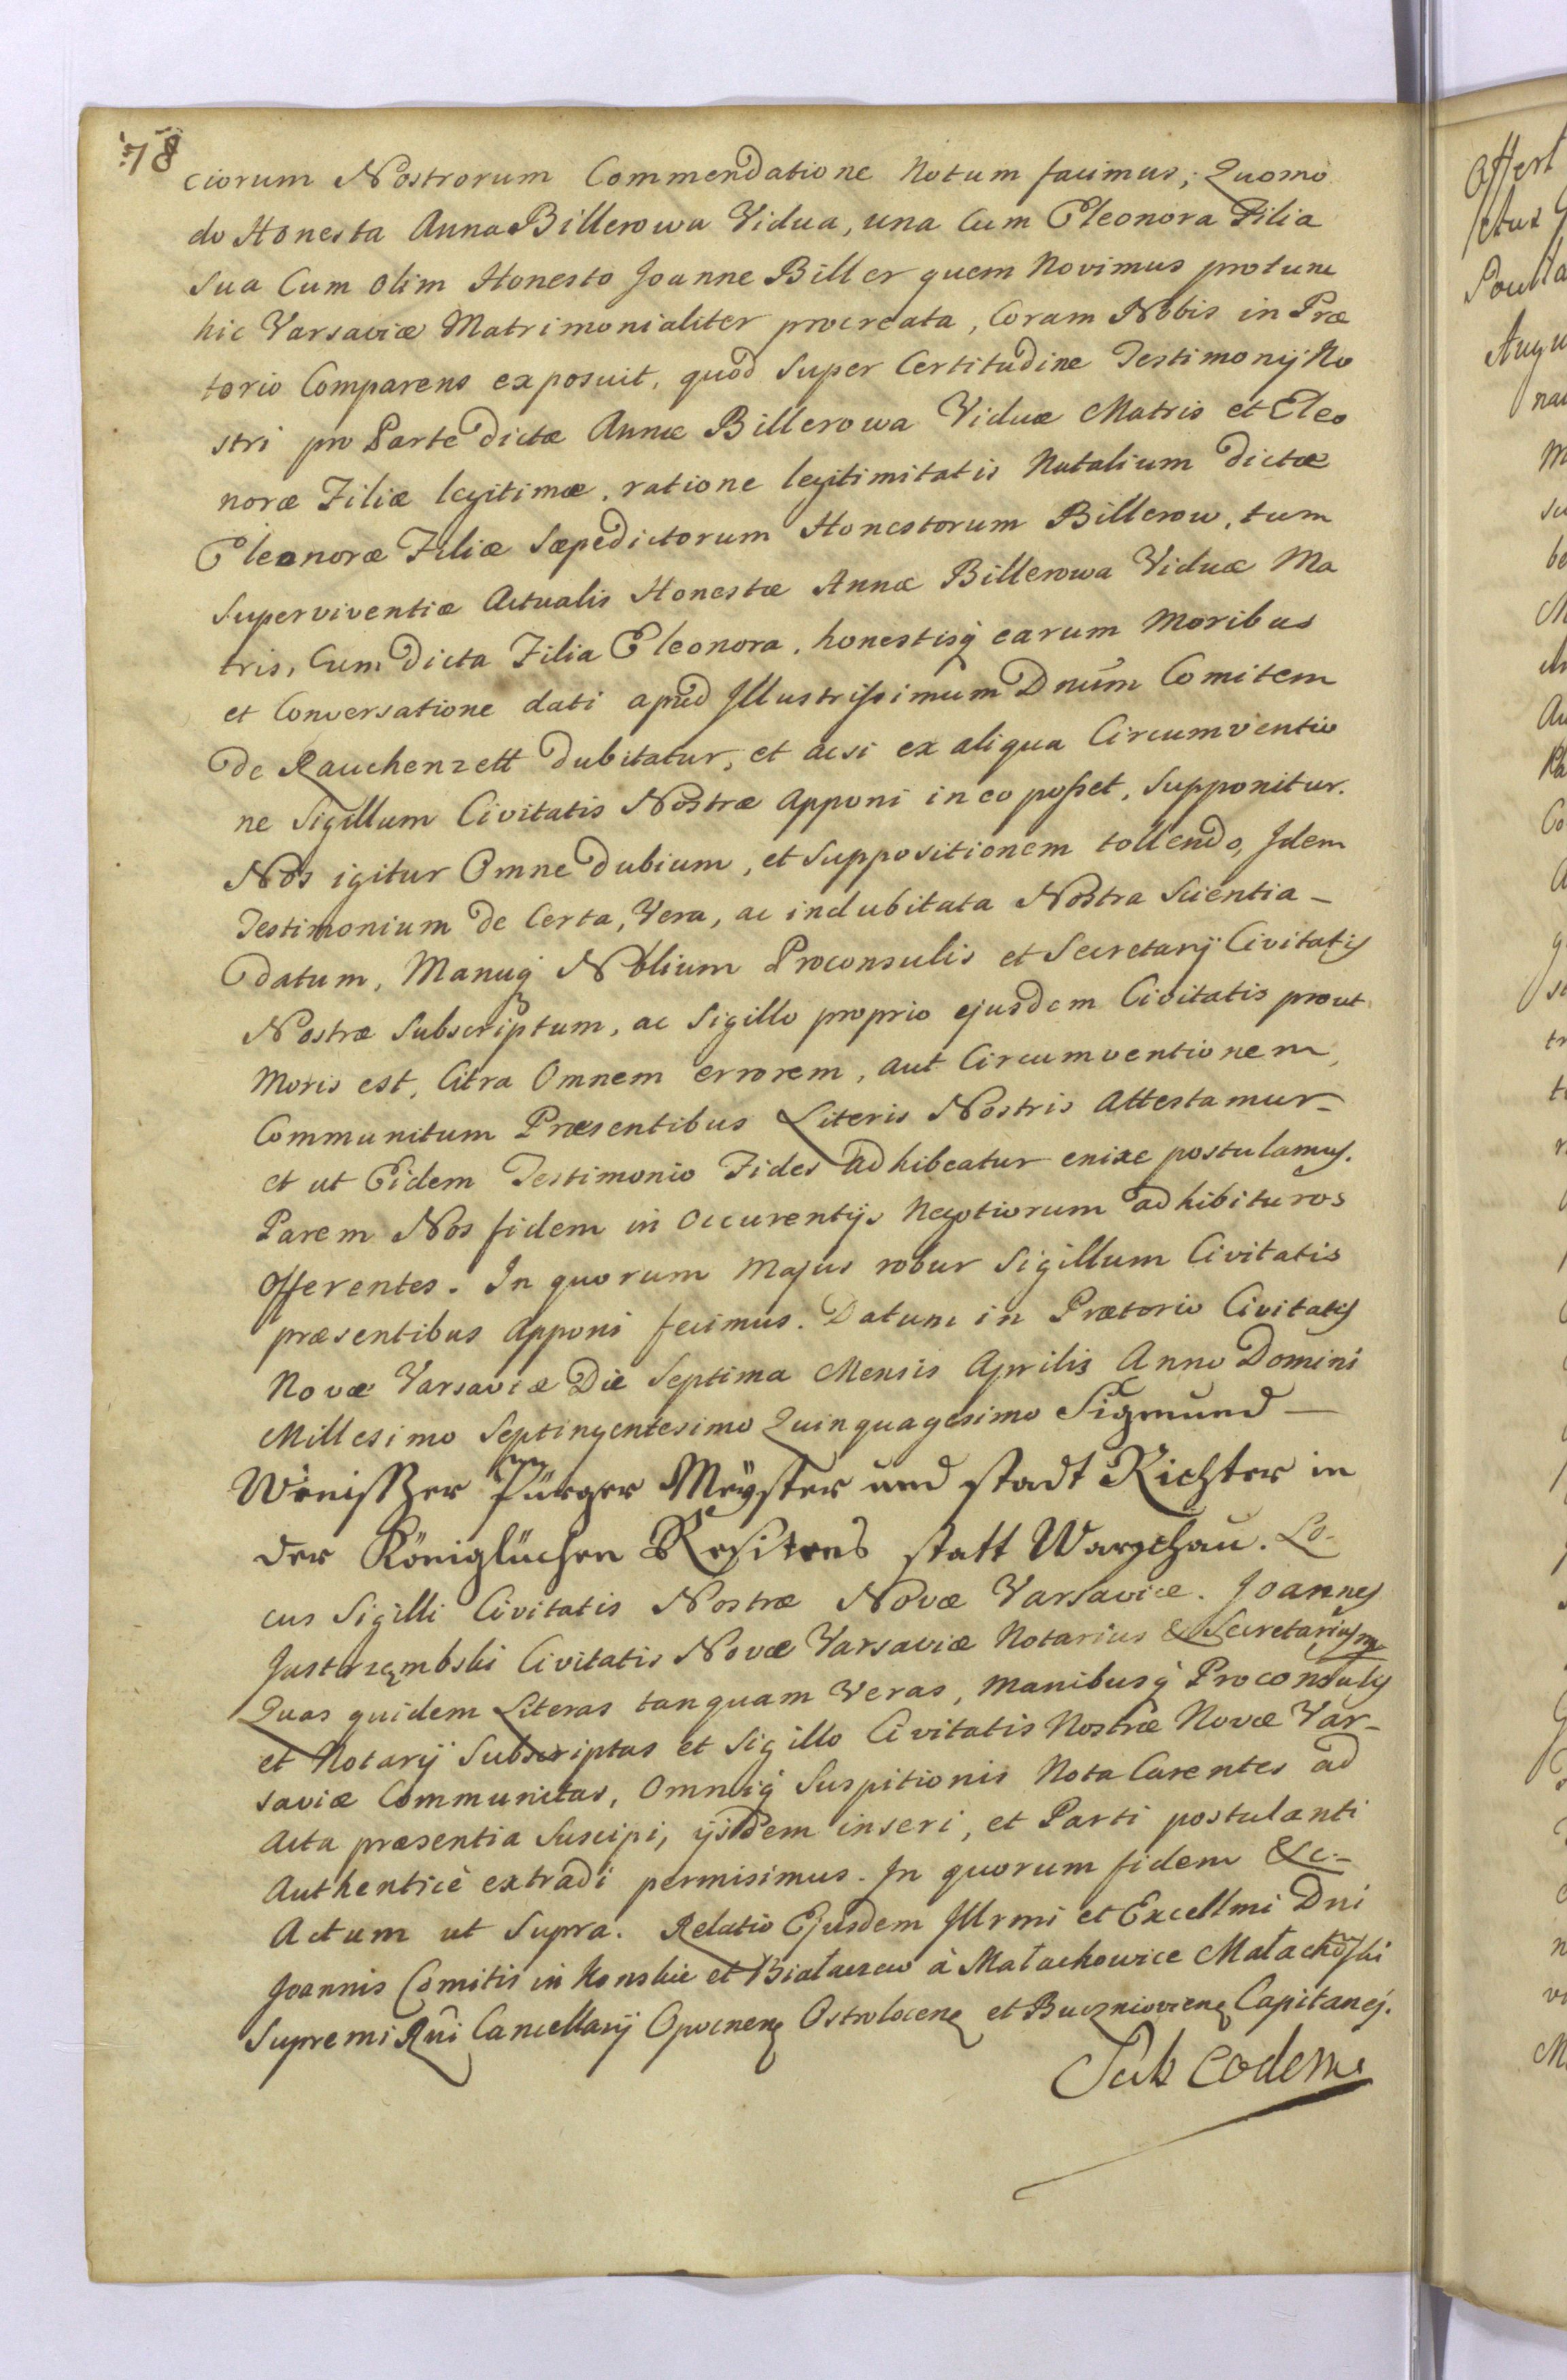 78
ciorum Nostrorum Commendatione Notum facimus; Quomo
do Honesta Anna Billerowa Vidua, una Cum Eleonora Filia
sua Cum olim Honesto Joanne Biller quem Novimus pro tunc
hic Varsaviæ Matrimonialiter procreata, Coram Nobis in Præ
torio Comparens exposuit, quod super Certitudine Testimonij No
stri pro Parte dictæ Annæ Billerowa Viduæ Matris et Eleo
noræ Filiæ legitimæ, ratione legitimitatis Natalium dictæ
Eleonoræ Filiæ sæpedictorum Honestorum Billerow, tum
superviventiæ actualis Honestæ Annæ Billerowa Viduæ Ma
tris, Cum dicta Filia Eleonora, honestisq earum Moribus
et Conversatione dati apud Jllustrissimum Dnum Comitem
de Rauchenzett dubitatur, et acsi ex aliqua Circumventio
ne Sigillum Civitatis Nostræ apponi in eo posset, supponitur.
Nos igitur Omne dubium, et suppositionem tollendo, Jdem
Testimonium de Certa, Vera, ac indubitata Nostra Scientia –
datum, Manuq Nobilium Proconsulis et Secretarij Civitatis
Nostræ subscriptum, ac Sigillo proprio ejusdem Civitatis prout
Moris est, Citra Omnem errorem, aut Circumventionem,
Communitum Præsentibus Literis Nostris attestamur –
et ut Eidem Testimonio Fides adhibeatur enixe postulamus.
Parem Nos fidem in occurentijs Negotiorum adhibituros
Offerentes. In quorum Majus robur Sigillum Civitatis
præsentibus apponi fecimus. Datum in Prætorio Civitatis
Novæ Varsaviæ Die Septima Mensis Aprilis Anno Domini
Millesimo Septingentesimo Quinquagesimo Sigmund –
Pürger Meÿster und stadt Richter in
der Königlüchen Resitens statt Warschau. Lo-
cus Sigilli Civitatis Nostræ Novæ Varsaviæ. Joannes
Jastrzęmbski Civitatis Novæ Varsaviæ Notarius & Secretarius mp
Quas quidem Literas tanquam Veras, Manibusq Proconsulis
et Notarij Subscriptas et Sigillo Civitatis Nostræ Novæ Var-
saviæ Communitas, Omniq Suspitionis Nota Carentes ad
Acta præsentia suscipi, ijsdem inseri, et Parti postulanti
Authenticè extradi permisimus. Jn quorum fidem &c:–
Actum ut Supra. Relatio Ejusdem Jllrmi et Excellmi Dni
Joannis Comitis in Konskie et Białaczew à Małachowice Małachowski
Supremi Rni Cancellarij Opocnen Ostrolecen et Capitanej.
Sub eodem